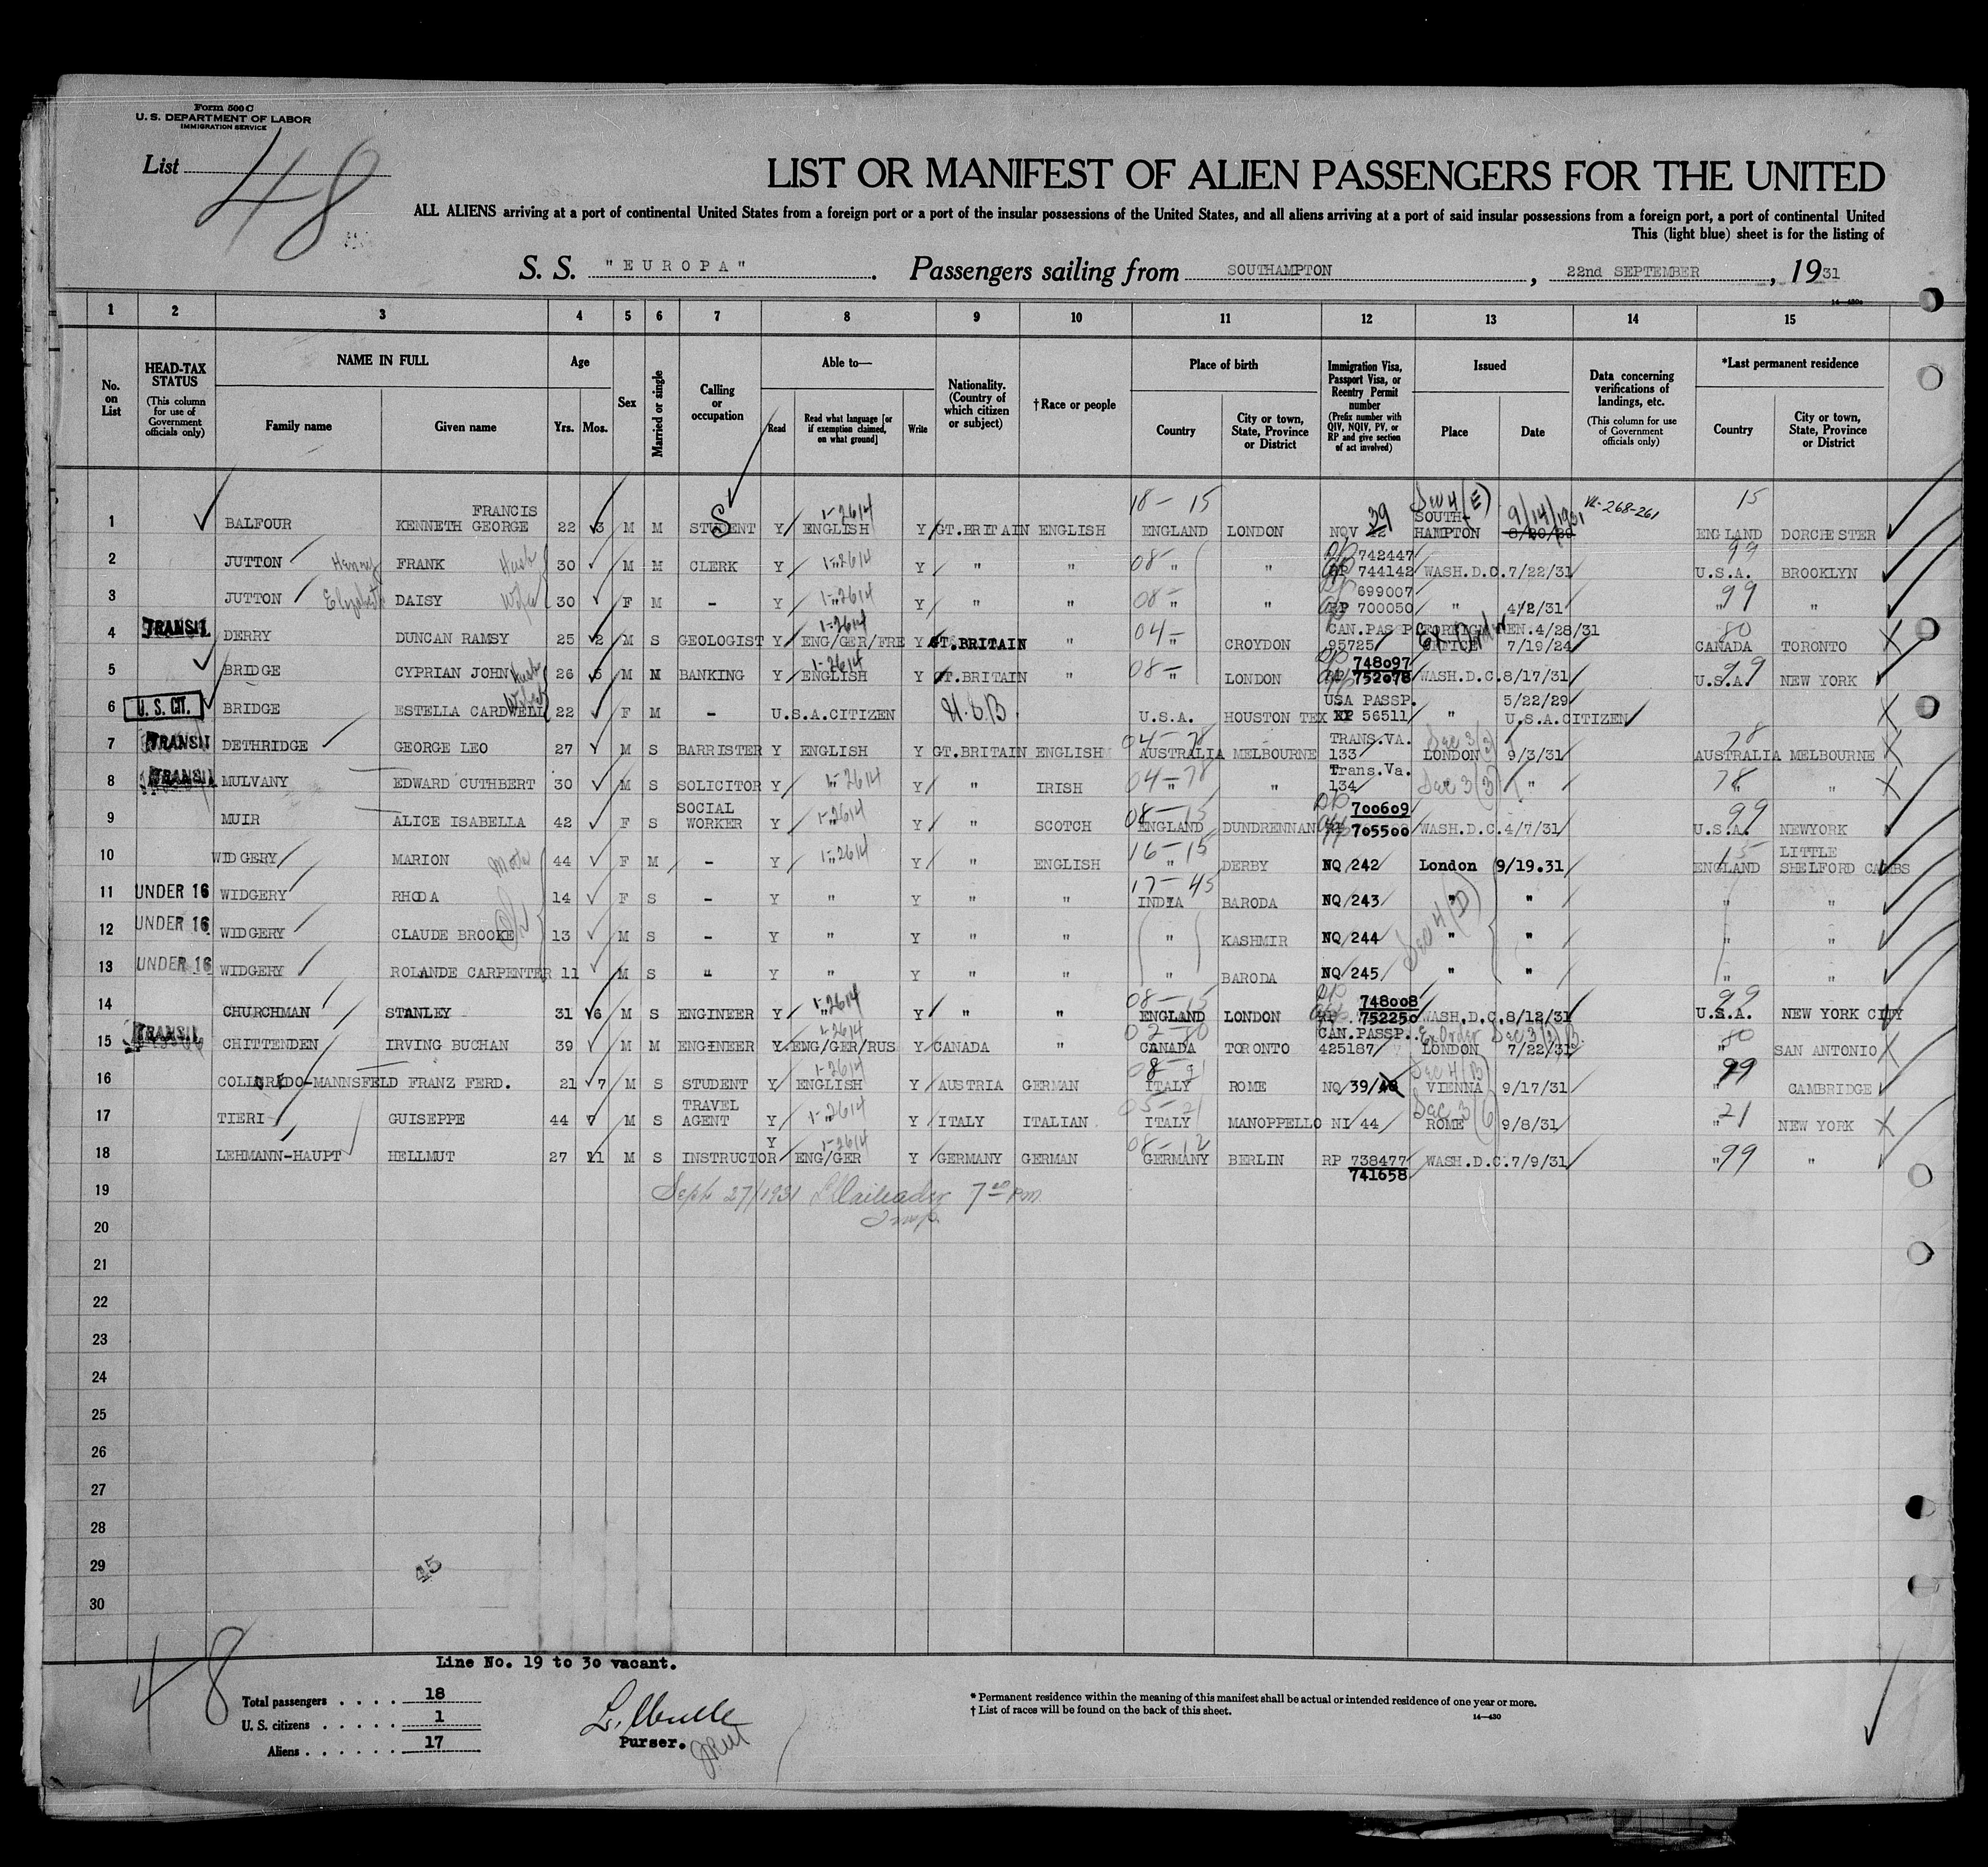 Form 500 C
U. S. DEPARTMENT OF LABOR
IMMIGRATION SERVICE
List 48
LIST OR MANIFEST OF ALIEN PASSENGERS FOR THE UNITED
ALL ALIENS arriving at a port of continental United States from a foreign port or a port of the insular possessions of the United States, and all aliens arriving at a port of said insular possessions from a foreign port, a port of continental United
This (light blue) sheet is for the listing of
S. S. "EUROPA". Passengers sailing from SOUTHAMPTON, 22nd SEPTEMBER, 1931
1 2 3 4 5 6 7 8 9 10 11 12 13 14 15
No. on List
HEAD-TAX STATUS (This column for use of Government officials only)
NAME IN FULL Family name Given name
Age Yrs. Mos.
Sex
Married or single
Calling or occupation
Able to— Read Read what language [or if exemption claimed, on what ground] Write
Nationality. (Country of which citizen or subject)
†Race or people
Place of birth Country City or town, State, Province or District
Immigration Visa, Passport Visa, or Reentry Permit number (Prefix number with QIV, NQIV, PV, or RP and give section of act involved)
Issued Place Date
Data concerning verifications of landings, etc. (This column for use of Government officials only)
*Last permanent residence Country City or town, State, Province or District
1 BALFOUR KENNETH FRANCIS GEORGE 22 3 M M STUDENT S Y ENGLISH 1-2614 Y GT.BRITAIN ENGLISH 18-15 ENGLAND LONDON NOV 12 39 SOUTH-HAMPTON Sec 4(E) 8/20/29 9/14/1931 VL-268-261 15 ENGLAND DORCHESTER
2 JUTTON Henry FRANK Husb 30 M M CLERK Y " 1-2614 Y " " 08- " " 742447 RP 744142 WASH.D.C. 7/22/31 99 U.S.A. BROOKLYN
3 JUTTON Elizabeth DAISY Wife 30 F M - Y " 1-2614 Y " " 08- " " 699007 RP 700050 " 4/2/31 99 " "
4 TRANSIT DERRY DUNCAN RAMSY 25 2 M S GEOLOGIST Y ENG/GER/FRE 1-2614 Y GT.BRITAIN " 04- " CROYDON CAN.PASP 95725 FOREIGN OFFICE Ex Order EN.4/28/31 7/19/24 80 CANADA TORONTO X
5 BRIDGE CYPRIAN JOHN Husb 26 6 M M BANKING Y ENGLISH 1-2614 Y GT.BRITAIN " 08- " LONDON 748097 752078 WASH.D.C. 8/17/31 99 U.S.A. NEW YORK
6 U. S. CIT. BRIDGE ESTELLA CARDWELL Wife 22 F M - U.S.A.CITIZEN U.S.B. U.S.A. HOUSTON TEX USA PASSP. 56511 " 5/22/29 U.S.A.CITIZEN X
7 TRANSIT DETHRIDGE GEORGE LEO 27 M S BARRISTER Y ENGLISH Y GT.BRITAIN ENGLISH 04-78 AUSTRALIA MELBOURNE TRANS.VA. 133 LONDON Sec 3(3) 9/3/31 78 AUSTRALIA MELBOURNE X
8 TRANSIT MULVANY EDWARD CUTHBERT 30 M S SOLICITOR Y " 1-2614 Y " IRISH 04-78 " " Trans.Va. 134 Sec 3(3) " 78 " " X
9 MUIR ALICE ISABELLA 42 F S SOCIAL WORKER Y " 1-2614 Y " SCOTCH 08-15 ENGLAND DUNDRENNAN 700609 705500 WASH.D.C. 4/7/31 99 U.S.A. NEWYORK
10 WIDGERY MARION Mother 44 F M - Y " 1-2614 Y " ENGLISH 16-15 " DERBY NQ 242 London 9/19.31 15 ENGLAND LITTLE SHELFORD CAMBS
11 UNDER 16 WIDGERY RHODA 14 F S - Y " Y " " 17-45 INDIA BARODA NQ 243 " " " "
12 UNDER 16 WIDGERY CLAUDE BROOKE Ch 13 M S - Y " Y " " " KASHMIR NQ 244 Sec 4(D) " " " "
13 UNDER 16 WIDGERY ROLANDE CARPENTER 11 M S " Y " Y " " " BARODA NQ 245 " " " "
14 CHURCHMAN STANLEY 31 6 M S ENGINEER Y " 1-2614 Y " " 08-15 ENGLAND LONDON 748008 752250 WASH.D.C. 8/12/31 99 U.S.A. NEW YORK CITY
15 TRANSIT CHITTENDEN IRVING BUCHAN 39 M M ENGINEER Y ENG/GER/RUS 1-2614 Y CANADA " 02-80 CANADA TORONTO CAN.PASSP. 425187 LONDON Ex Order Sec 3(3)B. 7/22/31 80 " SAN ANTONIO X
16 COLLOREDO-MANNSFELD FRANZ FERD. 21 7 M S STUDENT Y ENGLISH 1-2614 Y AUSTRIA GERMAN ITALY ROME NQ 39/ VIENNA 9/17/31 99 " CAMBRIDGE
17 TIERI GUISEPPE 44 M S TRAVEL AGENT Y " 1-2614 Y ITALY ITALIAN 05-21 ITALY MANOPPELLO NI 44 ROME Sec 3(6) 9/8/31 21 " NEW YORK X
18 LEHMANN-HAUPT HELLMUT 27 11 M S INSTRUCTOR Y ENG/GER 1-2614 Y GERMANY GERMAN 08-12 GERMANY BERLIN RP 738477 741658 WASH.D.C. 7/9/31 99 " "
19 Sept 27/1931 7 PM. Insp.
20
21
22
23
24
25
26
27
28
29
30
45
48
Line No. 19 to 30 vacant.
Total passengers . . . . 18
U. S. citizens . . . . . 1
Aliens . . . . . . 17
Purser.
* Permanent residence within the meaning of this manifest shall be actual or intended residence of one year or more.
† List of races will be found on the back of this sheet.
14—430